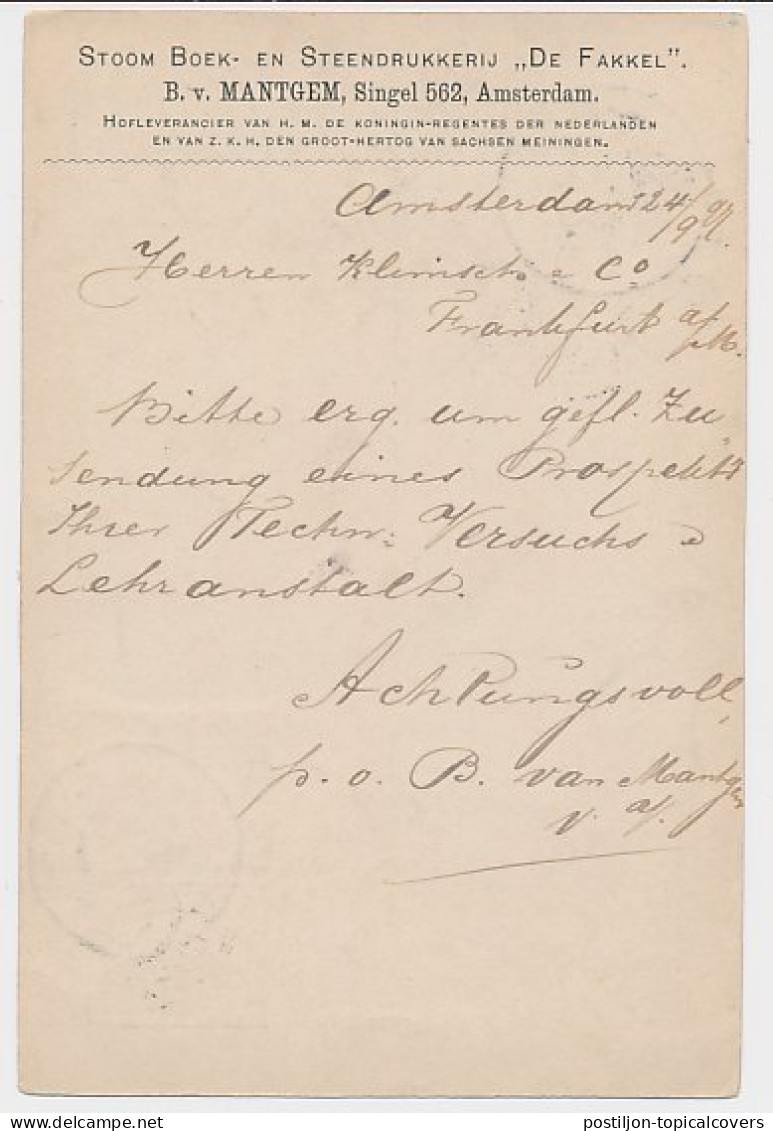 Stoom Boek- en Steendrukkerij „De Fakkel".
B. v. MANTGEM, Singel 562, Amsterdam.
Hofleverancier van H. M. de Koningin-Regentes der Nederlanden
en van Z. K. H. den Groot-Hertog van Sachsen Meiningen.
Amsterdam 24/9
Herren Klimsch & Co
Frankfurt a/M.
Bitte erg. um gefl. Zu
sendung eines Prospekts
Ihrer Techn: Versuchs &
Lehranstalt.
Achtungsvoll,
p. o. B. van Mantgem
postiljon-topicalcovers